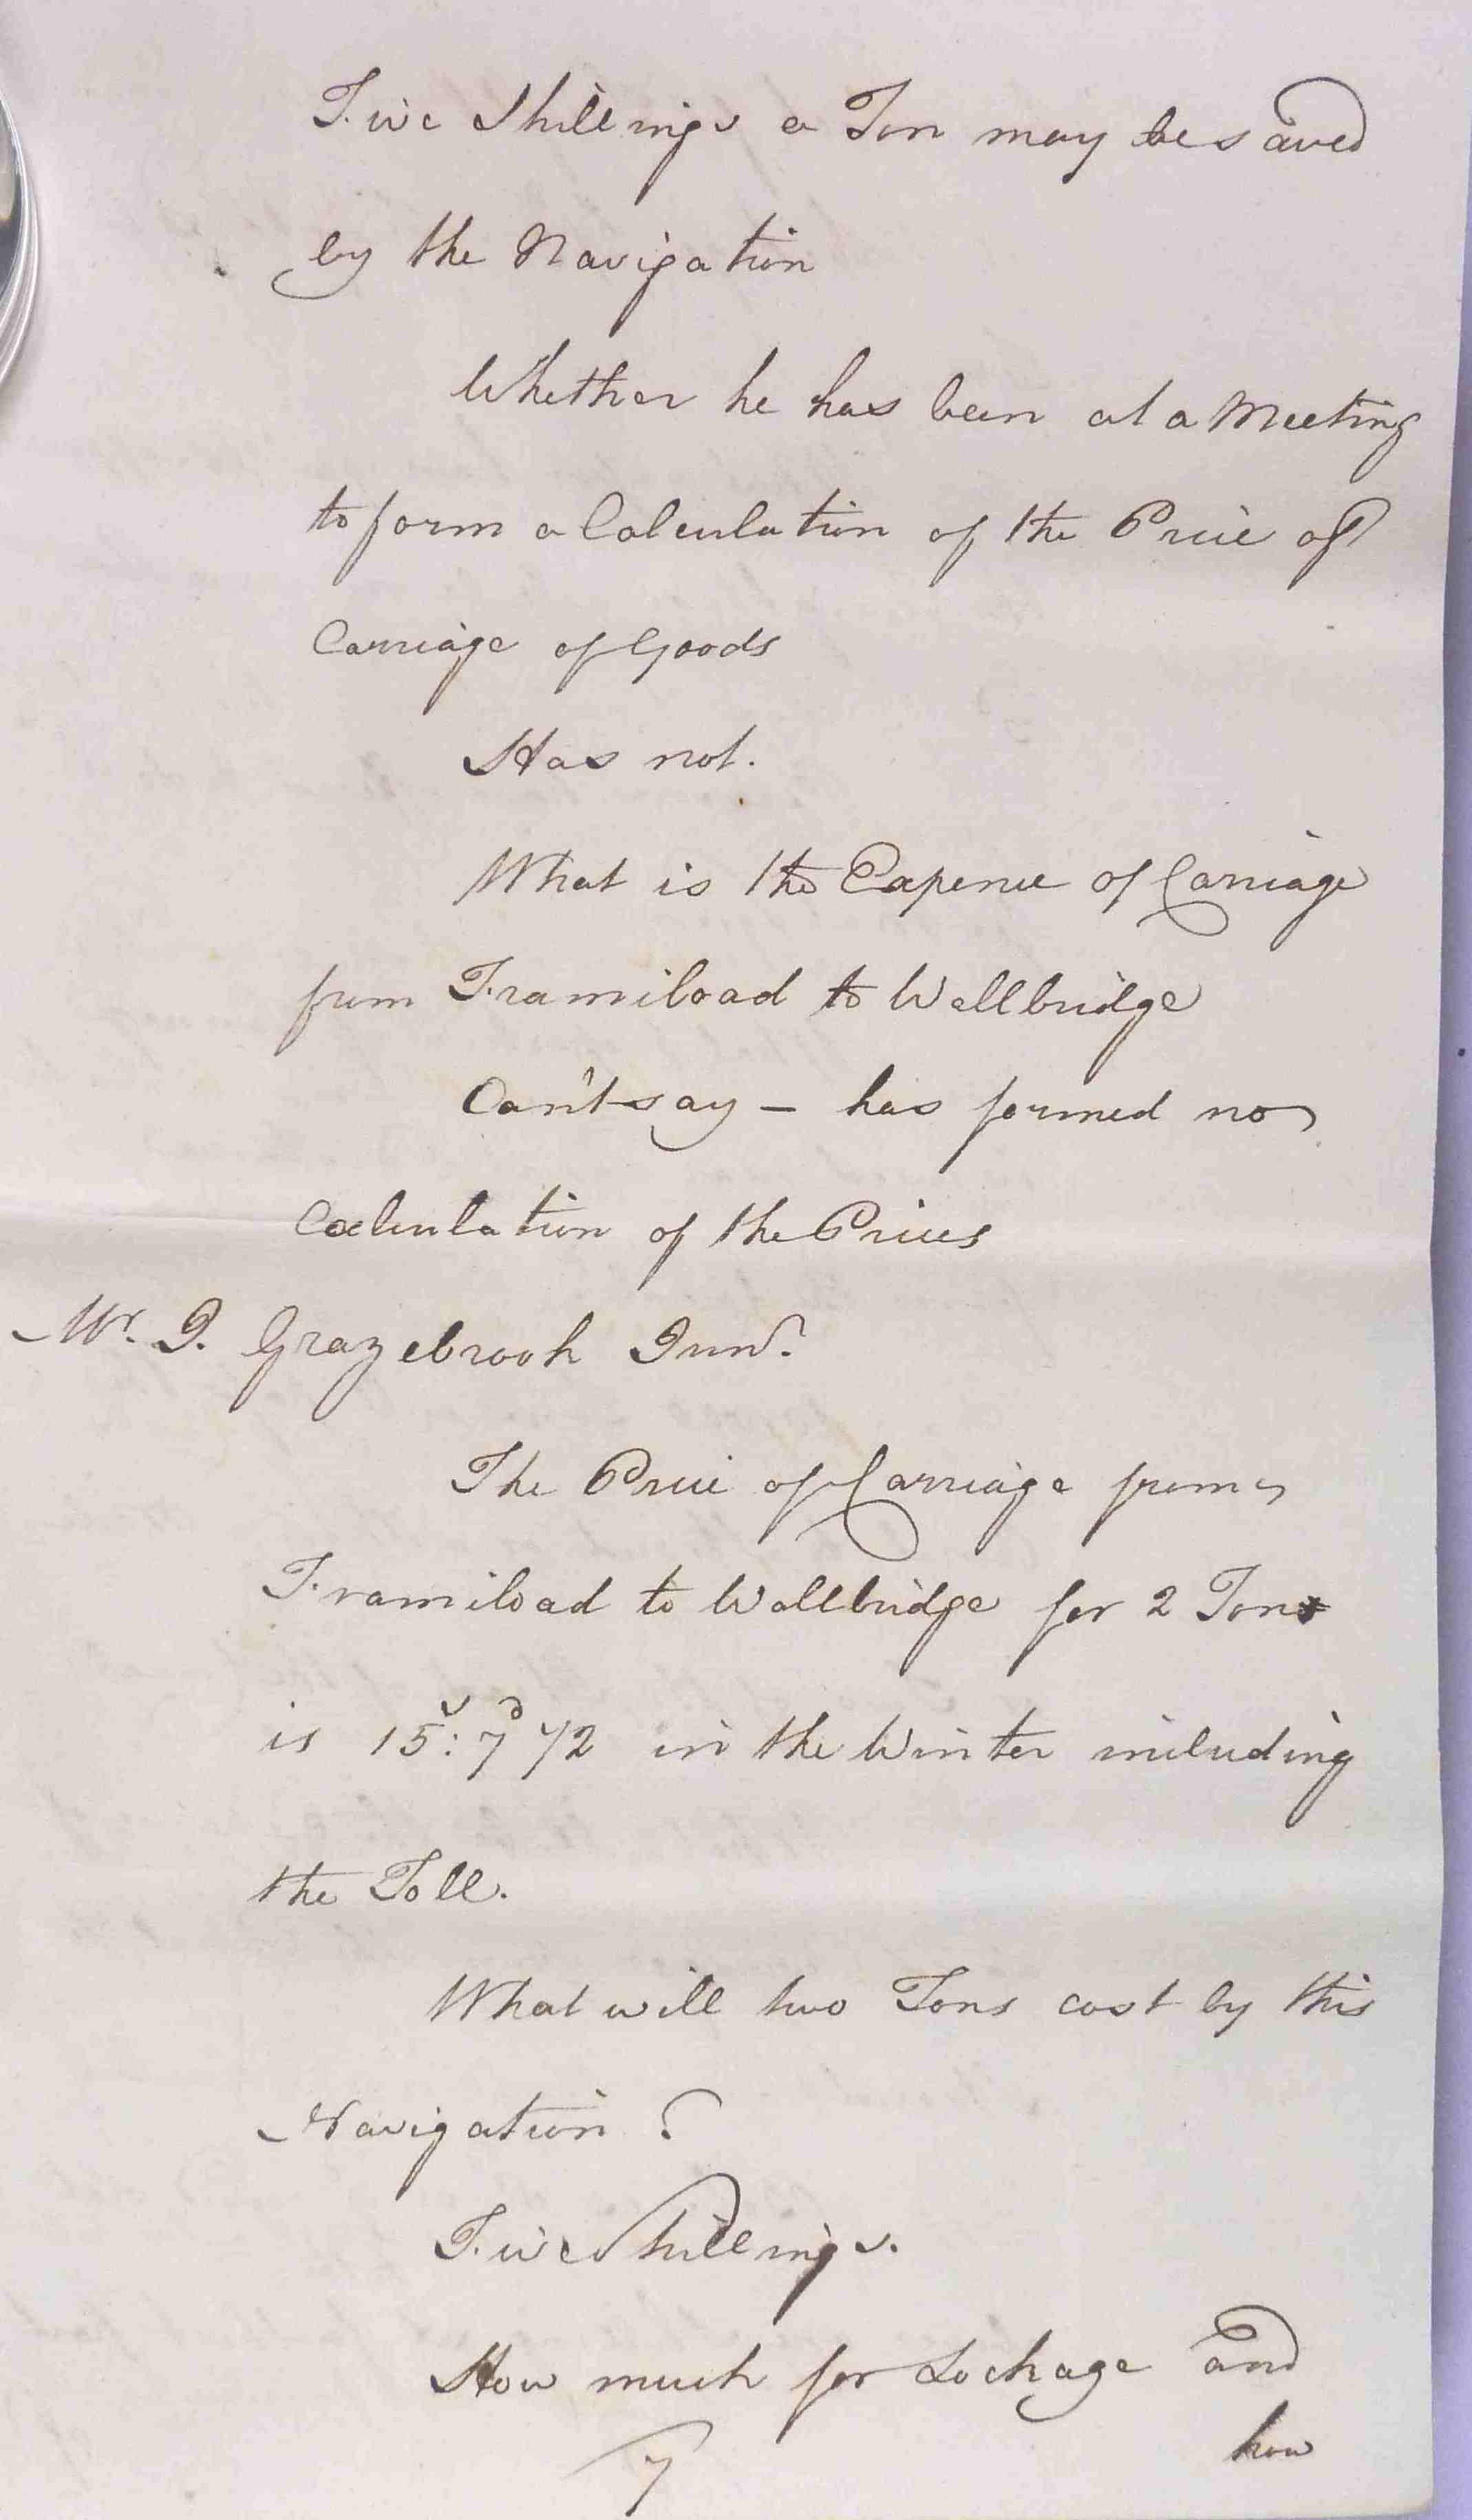 Five Shillings a Ton may be saved
by the Navigation
Whether he has been at a Meeting
to form a Calculation of the Price of
Carriage of Goods
Has not.
What is the Expence of Carriage
from Framiload to Wallbridge
Can't say – has formed no
Calculation of the Prices
Mr. J. Grazebrook Junr.
The Price of Carriage from
Framiload to Wallbridge for 2 Tons
is 15s: 7d 1/2 in the Winter including
the Toll.
What will two Tons cost by this
Navigation ?
Five Shillings.
How much for Lockage and
how
7